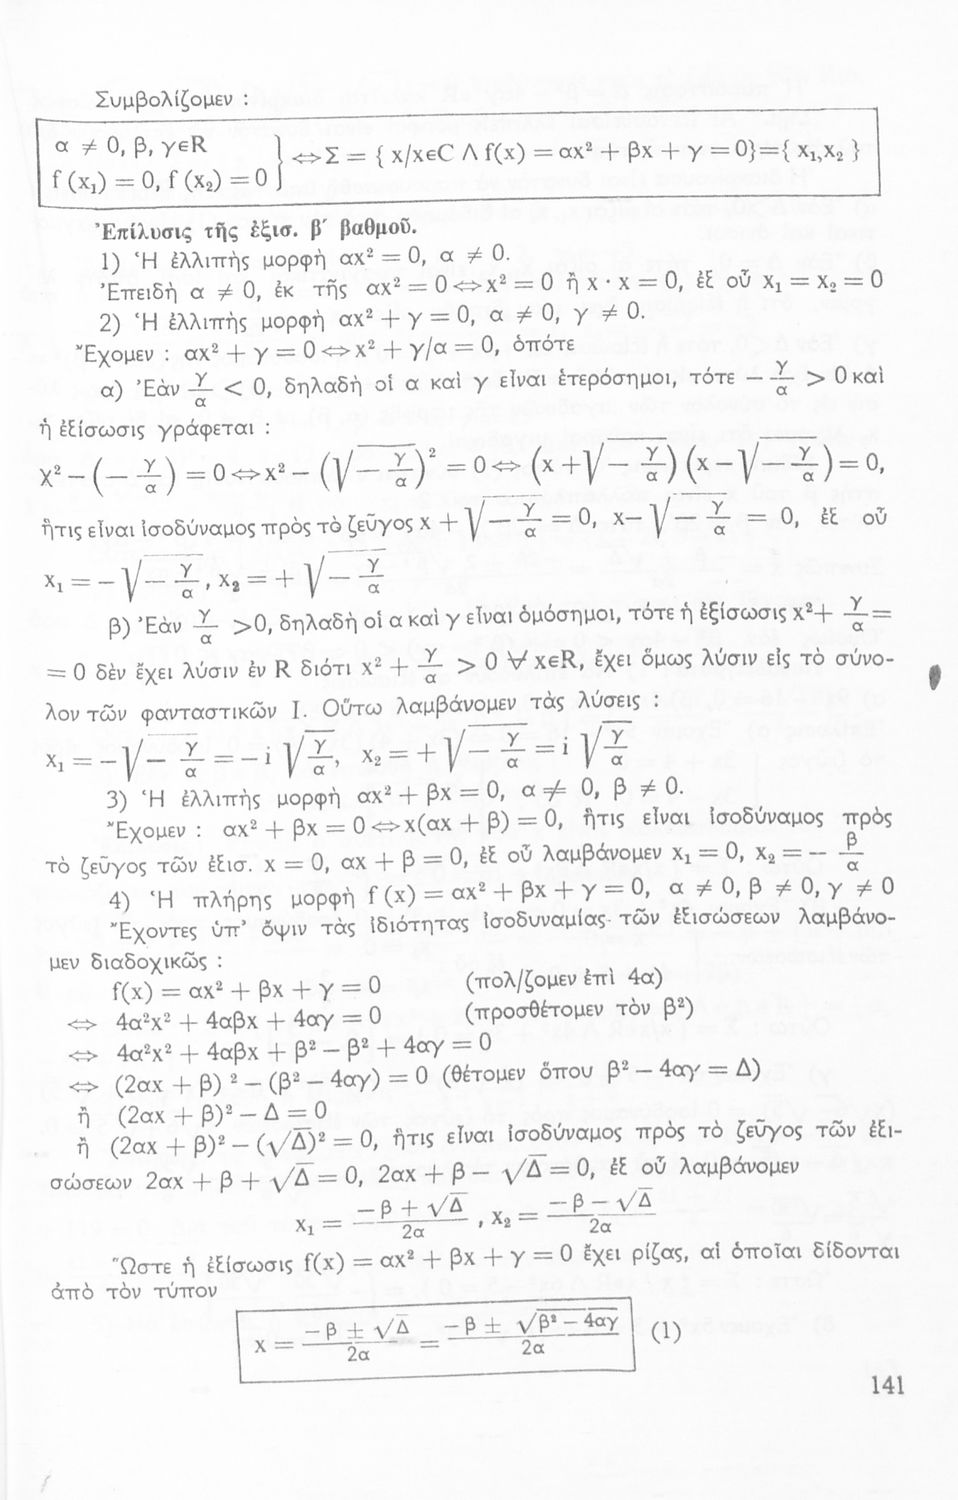 Συμβολίζομεν :
α ≠ 0, β, γεR
f (x₁) = 0, f (x₂) = 0 } <=> Σ = { x/xεC Λ f(x) = αx² + βx + γ = 0}={ x₁,x₂ }
Ἐπίλυσις τῆς ἐξισ. β΄ βαθμοῦ.
1) Ἡ ἐλλιπὴς μορφὴ αx² = 0, α ≠ 0.
Ἐπειδὴ α ≠ 0, ἐκ τῆς αx² = 0 <=> x² = 0 ἢ x · x = 0, ἐξ οὗ x₁ = x₂ = 0
2) Ἡ ἐλλιπὴς μορφὴ αx² + γ = 0, α ≠ 0, γ ≠ 0.
Ἔχομεν : αx² + γ = 0 <=> x² + γ/α = 0, ὁπότε
α) Ἐὰν γ/α < 0, δηλαδὴ οἱ α καὶ γ εἶναι ἑτερόσημοι, τότε — γ/α > 0 καὶ
ἡ ἐξίσωσις γράφεται :
x² — (— γ/α) = 0 <=> x² — (√(— γ/α))² = 0 <=> (x + √(— γ/α)) (x — √(— γ/α)) = 0,
ἥτις εἶναι ἰσοδύναμος πρὸς τὸ ζεῦγος x + √(— γ/α) = 0, x— √(— γ/α) = 0, ἐξ οὗ
x₁ = — √(— γ/α), x₂ = + √(— γ/α)
β) Ἐὰν γ/α >0, δηλαδὴ οἱ α καὶ γ εἶναι ὁμόσημοι, τότε ἡ ἐξίσωσις x²+ γ/α =
= 0 δὲν ἔχει λύσιν ἐν R διότι x² + γ/α > 0 ∀ xεR, ἔχει ὅμως λύσιν εἰς τὸ σύνο-
λον τῶν φανταστικῶν I. Οὕτω λαμβάνομεν τὰς λύσεις :
x₁ = — √(— γ/α) = — i √(γ/α), x₂ = + √(— γ/α) = i √(γ/α)
3) Ἡ ἐλλιπὴς μορφὴ αx² + βx = 0, α ≠ 0, β ≠ 0.
Ἔχομεν : αx² + βx = 0 <=> x(αx + β) = 0, ἥτις εἶναι ἰσοδύναμος πρὸς
τὸ ζεῦγος τῶν ἐξισ. x = 0, αx + β = 0, ἐξ οὗ λαμβάνομεν x₁ = 0, x₂ = — β/α
4) Ἡ πλήρης μορφὴ f (x) = αx² + βx + γ = 0, α ≠ 0, β ≠ 0, γ ≠ 0
Ἔχοντες ὑπ' ὄψιν τὰς ἰδιότητας ἰσοδυναμίας τῶν ἐξισώσεων λαμβάνο-
μεν διαδοχικῶς :
f(x) = αx² + βx + γ = 0 (πολ/ζομεν ἐπὶ 4α)
<=> 4α²x² + 4αβx + 4αγ = 0 (προσθέτομεν τὸν β²)
<=> 4α²x² + 4αβx + β² — β² + 4αγ = 0
<=> (2αx + β) ² — (β² — 4αγ) = 0 (θέτομεν ὅπου β² — 4αγ = Δ)
ἢ (2αx + β)² — Δ = 0
ἢ (2αx + β)² — (√Δ)² = 0, ἥτις εἶναι ἰσοδύναμος πρὸς τὸ ζεῦγος τῶν ἐξι-
σώσεων 2αx + β + √Δ = 0, 2αx + β — √Δ = 0, ἐξ οὗ λαμβάνομεν
x₁ = (—β + √Δ)/2α , x₂ = (—β — √Δ)/2α
Ὥστε ἡ ἐξίσωσις f(x) = αx² + βx + γ = 0 ἔχει ρίζας, αἱ ὁποῖαι δίδονται
ἀπὸ τὸν τύπον
x = (—β ± √Δ)/2α = (—β ± √(β² — 4αγ))/2α (1)
141